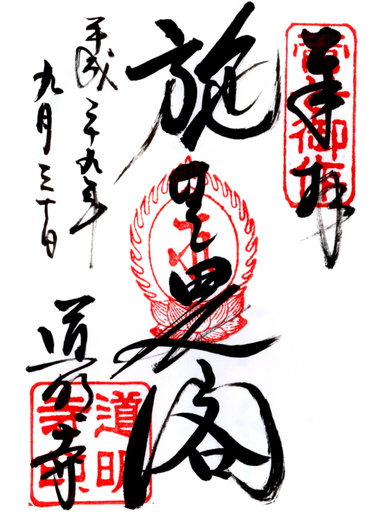 奉拝
菅公御作
施無畏閣
平成二十九年
九月三十日
道明寺
道明
寺印